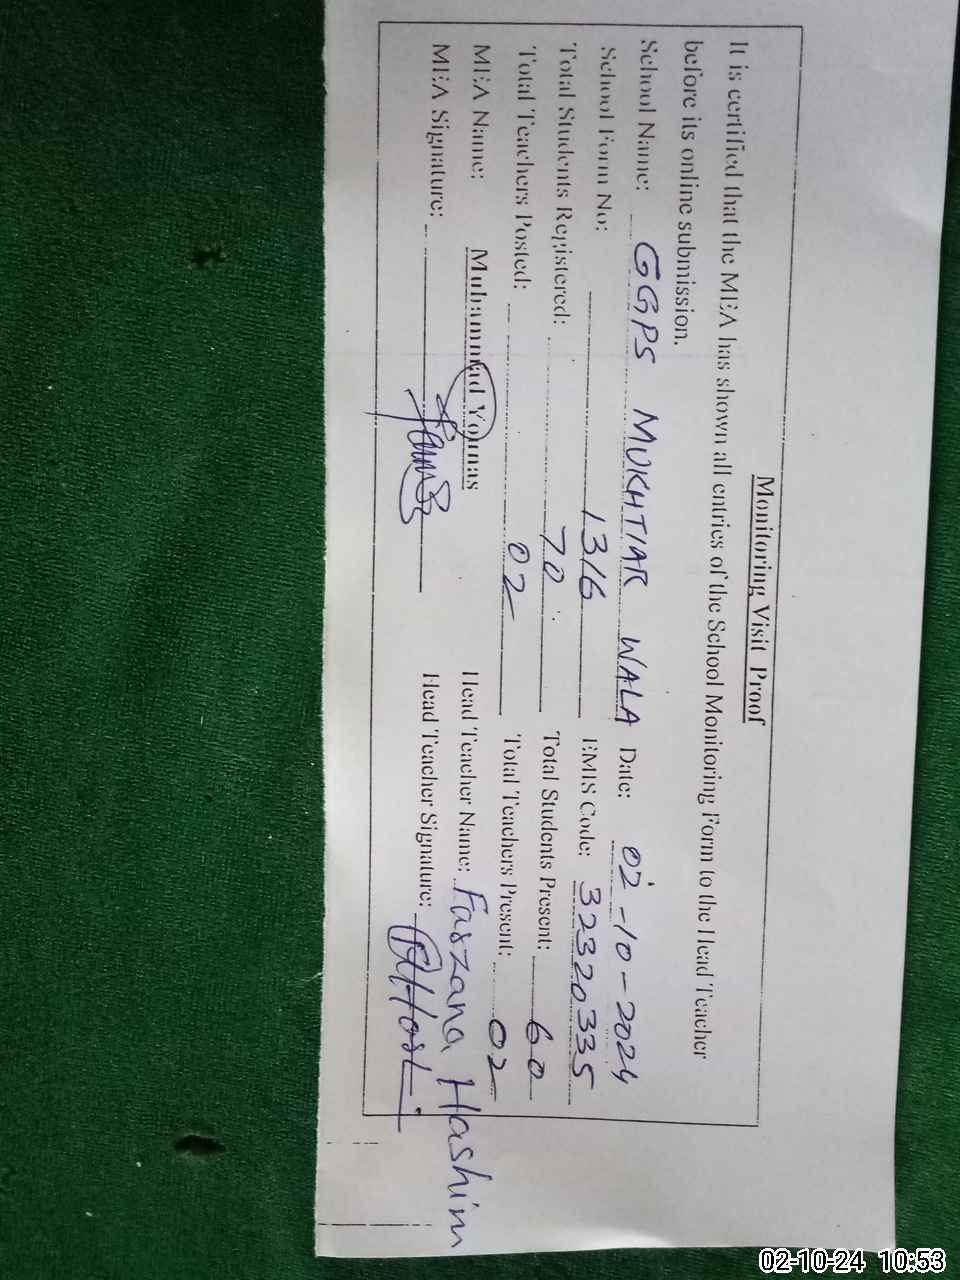 Monitoring Visit Proof
It is certified that the MEA has shown all entries of the School Monitoring Form to the Head Teacher
before its online submission.
School Name: GGPS MUKHTIAR WALA Date: 02-10-2024
School Form No: 1316 EMIS Code: 32320335
Total Students Registered: 70 Total Students Present: 60
Total Teachers Posted: 02 Total Teachers Present: 02
MEA Name: Muhammad Younas Head Teacher Name: Farzana Hashim
MEA Signature: Head Teacher Signature:
02-10-24 10:53